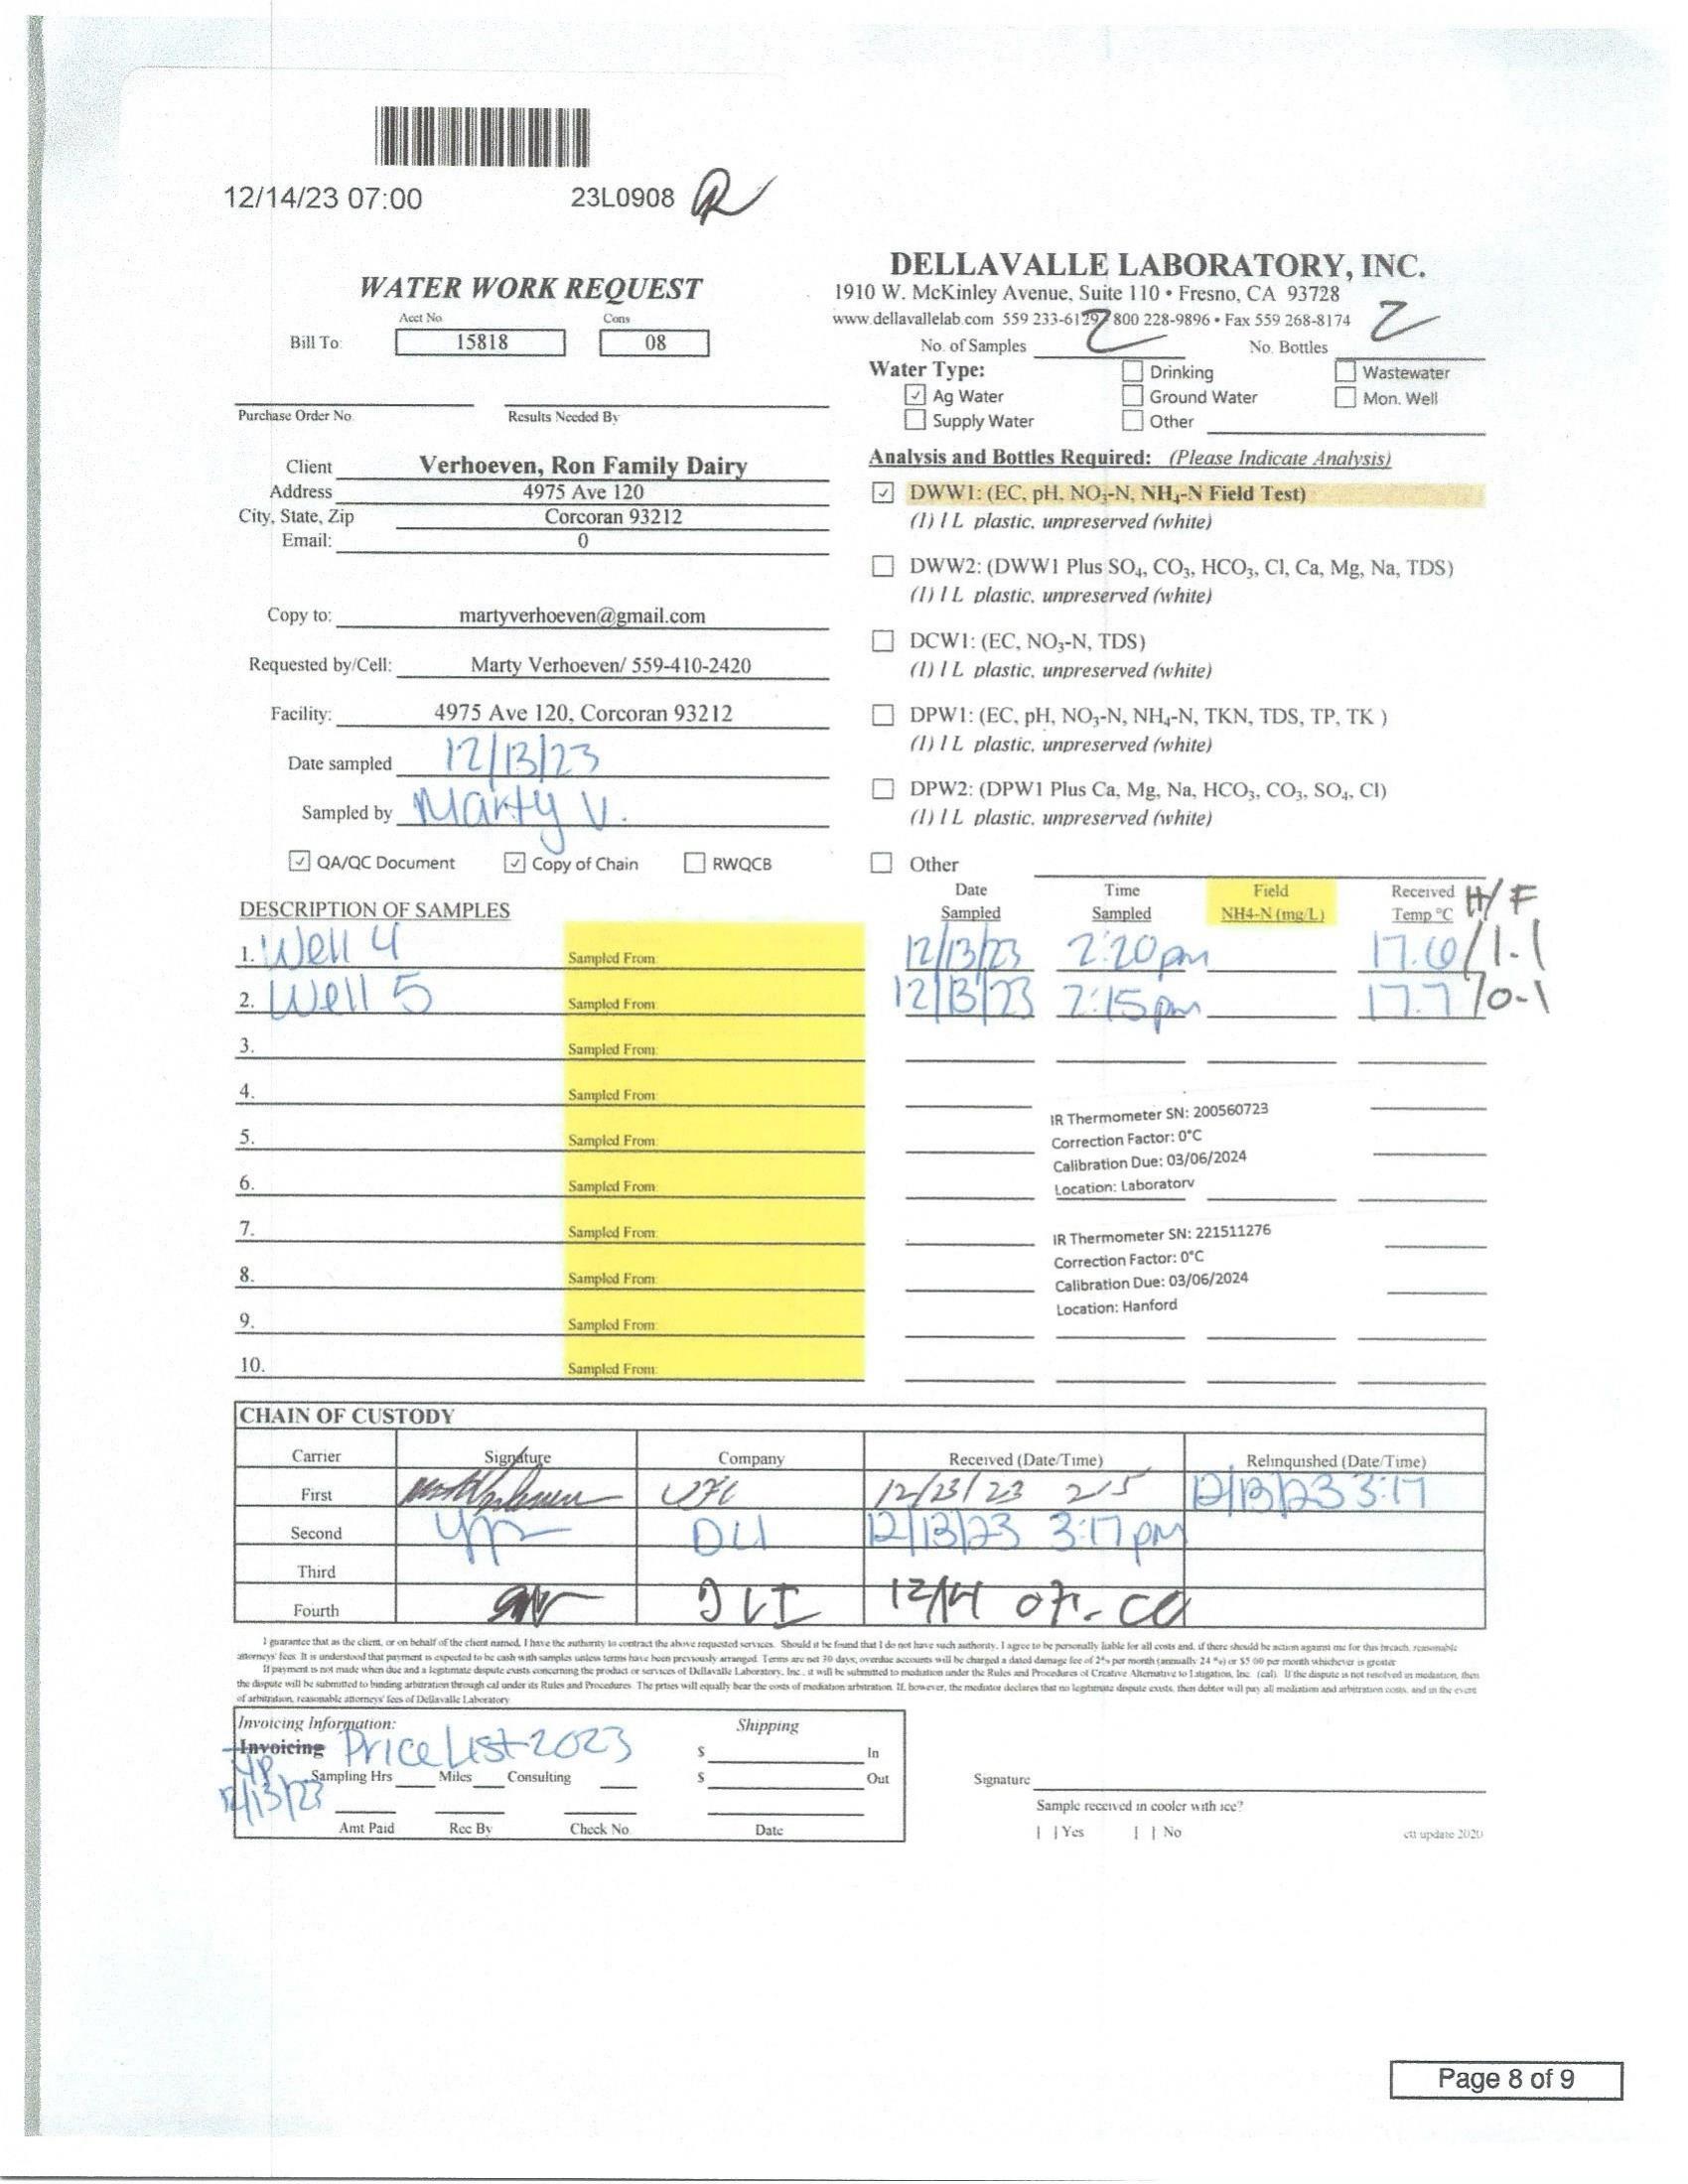 12/14/23 07:00 23L0908
WATER WORK REQUEST
Acct No Cons
Bill To: 15818 08
Purchase Order No. Results Needed By
Client Verhoeven, Ron Family Dairy
Address 4975 Ave 120
City, State, Zip Corcoran 93212
Email: 0
Copy to: martyverhoeven@gmail.com
Requested by/Cell: Marty Verhoeven/ 559-410-2420
Facility: 4975 Ave 120, Corcoran 93212
Date sampled 12/13/23
Sampled by Marty V.
QA/QC Document Copy of Chain RWQCB
DELLAVALLE LABORATORY, INC.
1910 W. McKinley Avenue, Suite 110 • Fresno, CA 93728
www.dellavallelab.com 559 233-6129 800 228-9896 • Fax 559 268-8174
No. of Samples 2 No. Bottles 2
Water Type: Drinking Wastewater
Ag Water Ground Water Mon. Well
Supply Water Other
Analysis and Bottles Required: (Please Indicate Analysis)
DWW1: (EC, pH, NO3-N, NH4-N Field Test)
(1) 1 L plastic, unpreserved (white)
DWW2: (DWW1 Plus SO4, CO3, HCO3, Cl, Ca, Mg, Na, TDS)
(1) 1 L plastic, unpreserved (white)
DCW1: (EC, NO3-N, TDS)
(1) 1 L plastic, unpreserved (white)
DPW1: (EC, pH, NO3-N, NH4-N, TKN, TDS, TP, TK )
(1) 1 L plastic, unpreserved (white)
DPW2: (DPW1 Plus Ca, Mg, Na, HCO3, CO3, SO4, Cl)
(1) 1 L plastic, unpreserved (white)
Other
DESCRIPTION OF SAMPLES Date Sampled Time Sampled Field NH4-N (mg/L) Received Temp °C H/F
1. Well 4 Sampled From: 12/13/23 2:20pm 17.6/1.1
2. Well 5 Sampled From: 12/13/23 2:15pm 17.7/0.1
3. Sampled From:
4. Sampled From:
5. Sampled From:
6. Sampled From:
7. Sampled From:
8. Sampled From:
9. Sampled From:
10. Sampled From:
IR Thermometer SN: 200560723
Correction Factor: 0°C
Calibration Due: 03/06/2024
Location: Laboratory
IR Thermometer SN: 221511276
Correction Factor: 0°C
Calibration Due: 03/06/2024
Location: Hanford
CHAIN OF CUSTODY
Carrier Signature Company Received (Date/Time) Relinquished (Date/Time)
First 12/23/23 215 12/13/23 3:17
Second DLI 12/13/23 3:17pm
Third
Fourth DLI 12/14 07:00
I guarantee that as the client, or on behalf of the client named, I have the authority to contract the above requested services. Should it be found that I do not have such authority, I agree to be personally liable for all costs and, if there should be action against me for this breach, reasonable
attorneys' fees. It is understood that payment is expected to be cash with samples unless terms have been previously arranged. Terms are net 30 days, overdue accounts will be charged a dated damage fee of 2% per month (annually 24 %) or $5.00 per month whichever is greater
If payment is not made when due and a legitimate dispute exists concerning the product or services of Dellavalle Laboratory, Inc., it will be submitted to mediation under the Rules and Procedures of Creative Alternative to Litigation, Inc. (cal). If the dispute is not resolved in mediation, then
the dispute will be submitted to binding arbitration through cal under its Rules and Procedures. The prties will equally bear the costs of mediation arbitration. If, however, the mediator declares that no legitimate dispute exists, then debtor will pay all mediation and arbitration costs, and in the event
of arbitration, reasonable attorneys' fees of Dellavalle Laboratory
Invoicing Information: Shipping
Invoicing Price List 2023 $ In
YP 12/13/23 Sampling Hrs Miles Consulting $ Out
Amt Paid Rec By Check No. Date
Signature
Sample received in cooler with ice?
[ ] Yes [ ] No
ctt update 2020
Page 8 of 9